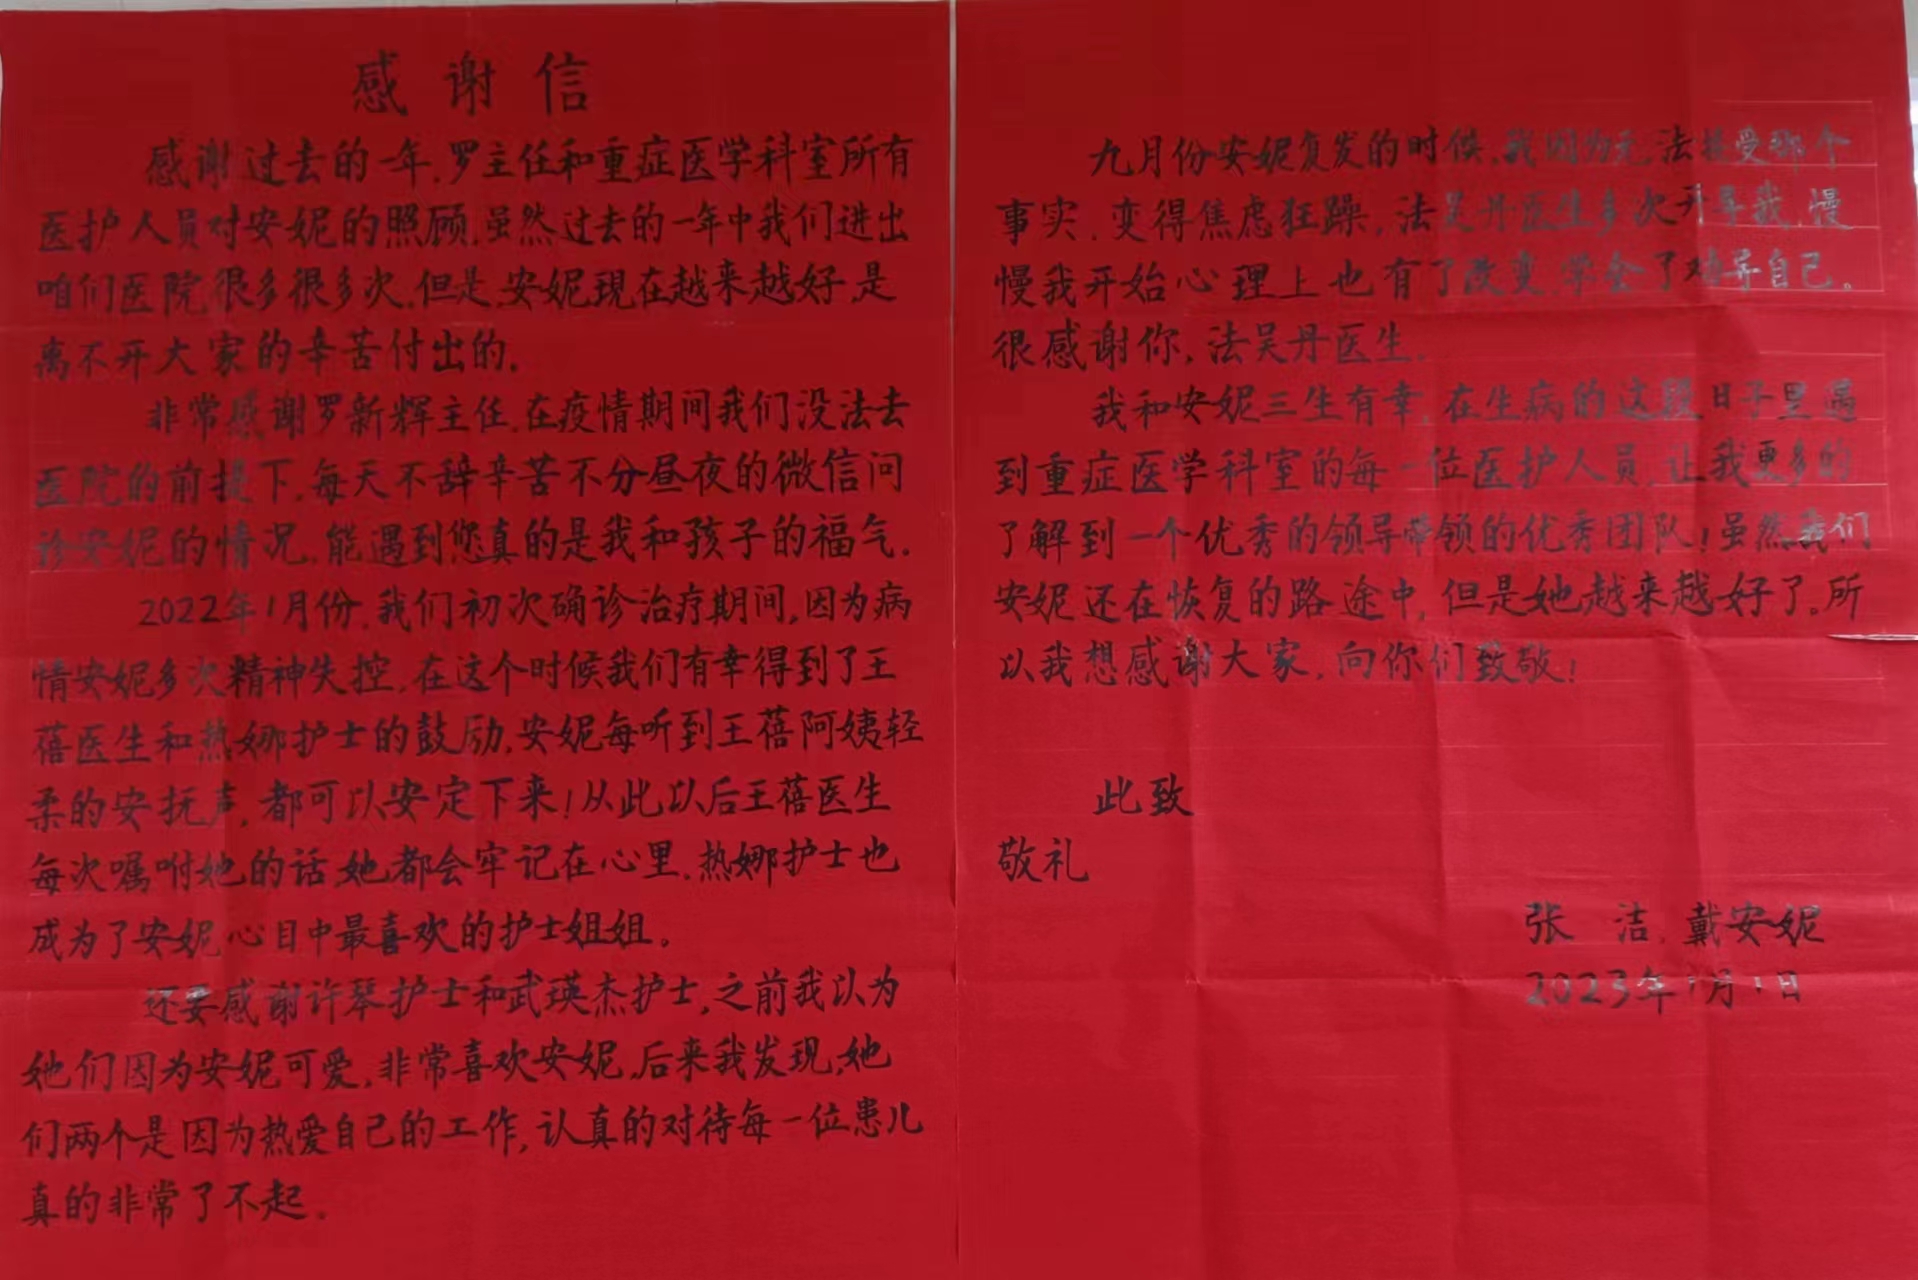 感谢信
感谢过去的一年，罗主任和重症医学科室所有
医护人员对安妮的照顾，虽然过去的一年中我们进出
咱们医院很多很多次，但是，安妮现在越来越好，是
离不开大家的辛苦付出的。
非常感谢罗新辉主任，在疫情期间我们没法去
医院的前提下，每天不辞辛苦不分昼夜的微信问
诊安妮的情况，能遇到您真的是我和孩子的福气。
2022年1月份，我们初次确诊治疗期间，因为病
情安妮多次精神失控，在这个时候我们有幸得到了王
蓓医生和热娜护士的鼓励，安妮每听到王蓓阿姨轻
柔的安抚声，都可以安定下来！从此以后王蓓医生
每次嘱咐她的话，她都会牢记在心里，热娜护士也
成为了安妮心目中最喜欢的护士姐姐。
还要感谢许琴护士和武瑛杰护士，之前我以为
她们因为安妮可爱，非常喜欢安妮，后来我发现，她
们两个是因为热爱自己的工作，认真的对待每一位患儿
真的非常了不起。
九月份安妮复发的时候，我因为无法接受那个
事实，变得焦虑狂躁，法吴丹医生多次开导我，慢
慢我开始心理上也有了改变，学会了劝导自己。
很感谢你，法吴丹医生。
我和安妮三生有幸，在生病的这段日子里遇
到重症医学科室的每一位医护人员，让我更多的
了解到一个优秀的领导带领的优秀团队！虽然我们
安妮还在恢复的路途中，但是她越来越好了。所
以我想感谢大家，向你们致敬！
此致
敬礼
张 洁，戴安妮
2023年1月1日